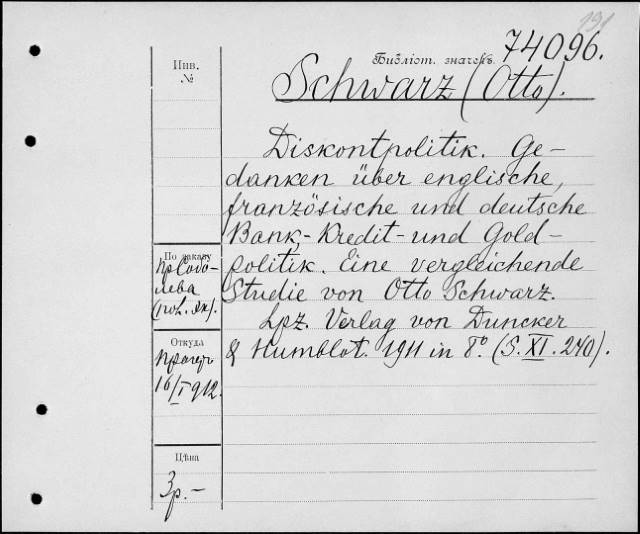 191
Библіот. значекъ. 74096.
Инв.
№
Schwarz (Otto).
Diskontpolitik. Ge-
danken über englische,
französische und deutsche
Bank,- Kredit- und Gold-
politik. Eine vergleichende
Studie von Otto Schwarz.
Lpz. Verlag von Duncker
& Humblot. 1911 in 8°. (S. XI. 240).
По заказу
пр Собо-
лева
Откуда
16/I 912.
Цѣна
3р.-